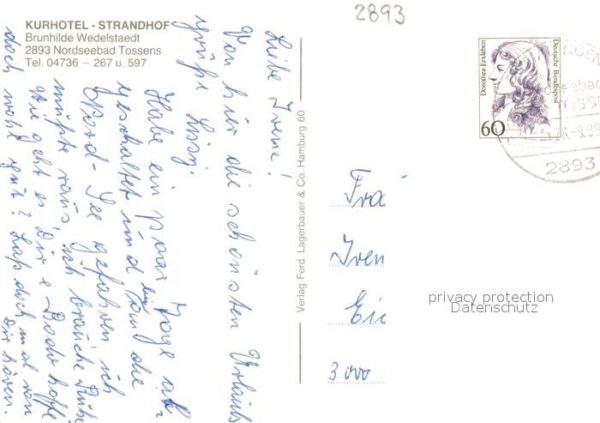 KURHOTEL - STRANDHOF
Brunhilde Wedelstaedt
2893 Nordseebad Tossens
Tel. 04736 – 267 u. 597
2893
Liebe Irene!
Von hier die schönsten Urlaubs
grüße Lissy.
Habe ein paar Tage ab-
geschaltet und bin an die
Nord-See gefahren, ich
mußte raus, ich brauche Ruhe
Wie geht es Dir? Doch hoffe
doch wohl gut? Laß doch mal von
Dir hören.
Verlag Ferd. Lagerbauer & Co. Hamburg 60
Dorothea Erxleben
Deutsche Bundespost
60
2893
Fra
Iren
3000
privacy protection
Datenschutz